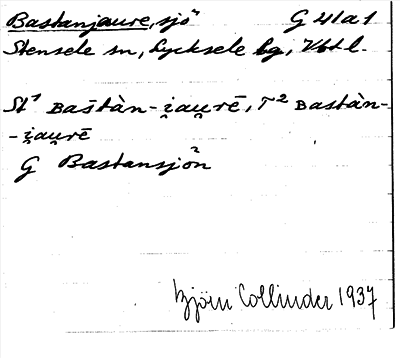 Bastanjaure, sjö G 41a1
Stensele sn, Lycksele lg, Vbtl.
St¹ Bastàn-i̯au̯rē, T² Bastàn-
-i̯au̯rē
G Bastansjö²n
Björn Collinder 1937